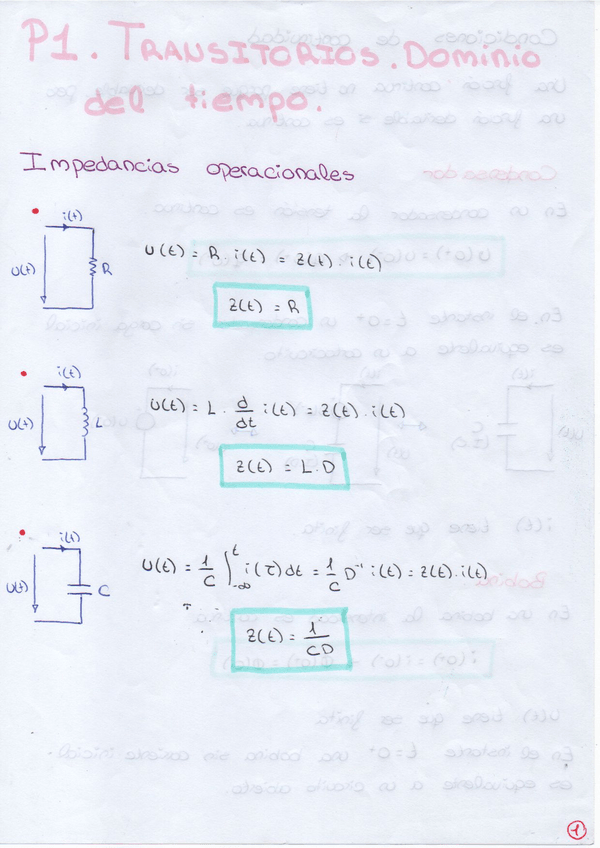 P1. TRANSITORIOS. Dominio
del tiempo.
Impedancias operacionales
i(t)
u(t)
R
u(t) = R. i(t) = z(t). i(t)
z(t) = R
i(t)
u(t)
L
u(t) = L. d/dt i(t) = z(t). i(t)
z(t) = L.D
i(t)
u(t)
C
u(t) = 1/C ∫_{-∞}^{t} i(τ)dt = 1/C D⁻¹ i(t) = z(t). i(t)
z(t) = 1/CD
1